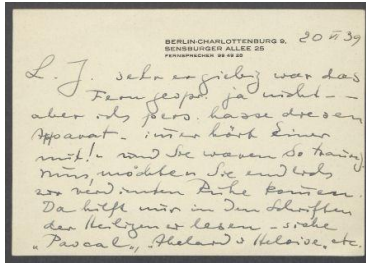 BERLIN-CHARLOTTENBURG 9,
SENSBURGER ALLEE 25
FERNSPRECHER 99 49 25
20 VI 39
L. J. sehr ergiebig war das
Ferngespr. ja nicht –
aber ich pers. hasse diesen
Apparat – immer hört Einer
mit! – und Sie waren so traurig
möchten Sie endlich
zur verdienten Ruhe kommen.
Da hilft nur in den Schriften
der Heiligen zu lesen – siehe
„Pascal", „Abelard u Heloise", etc.